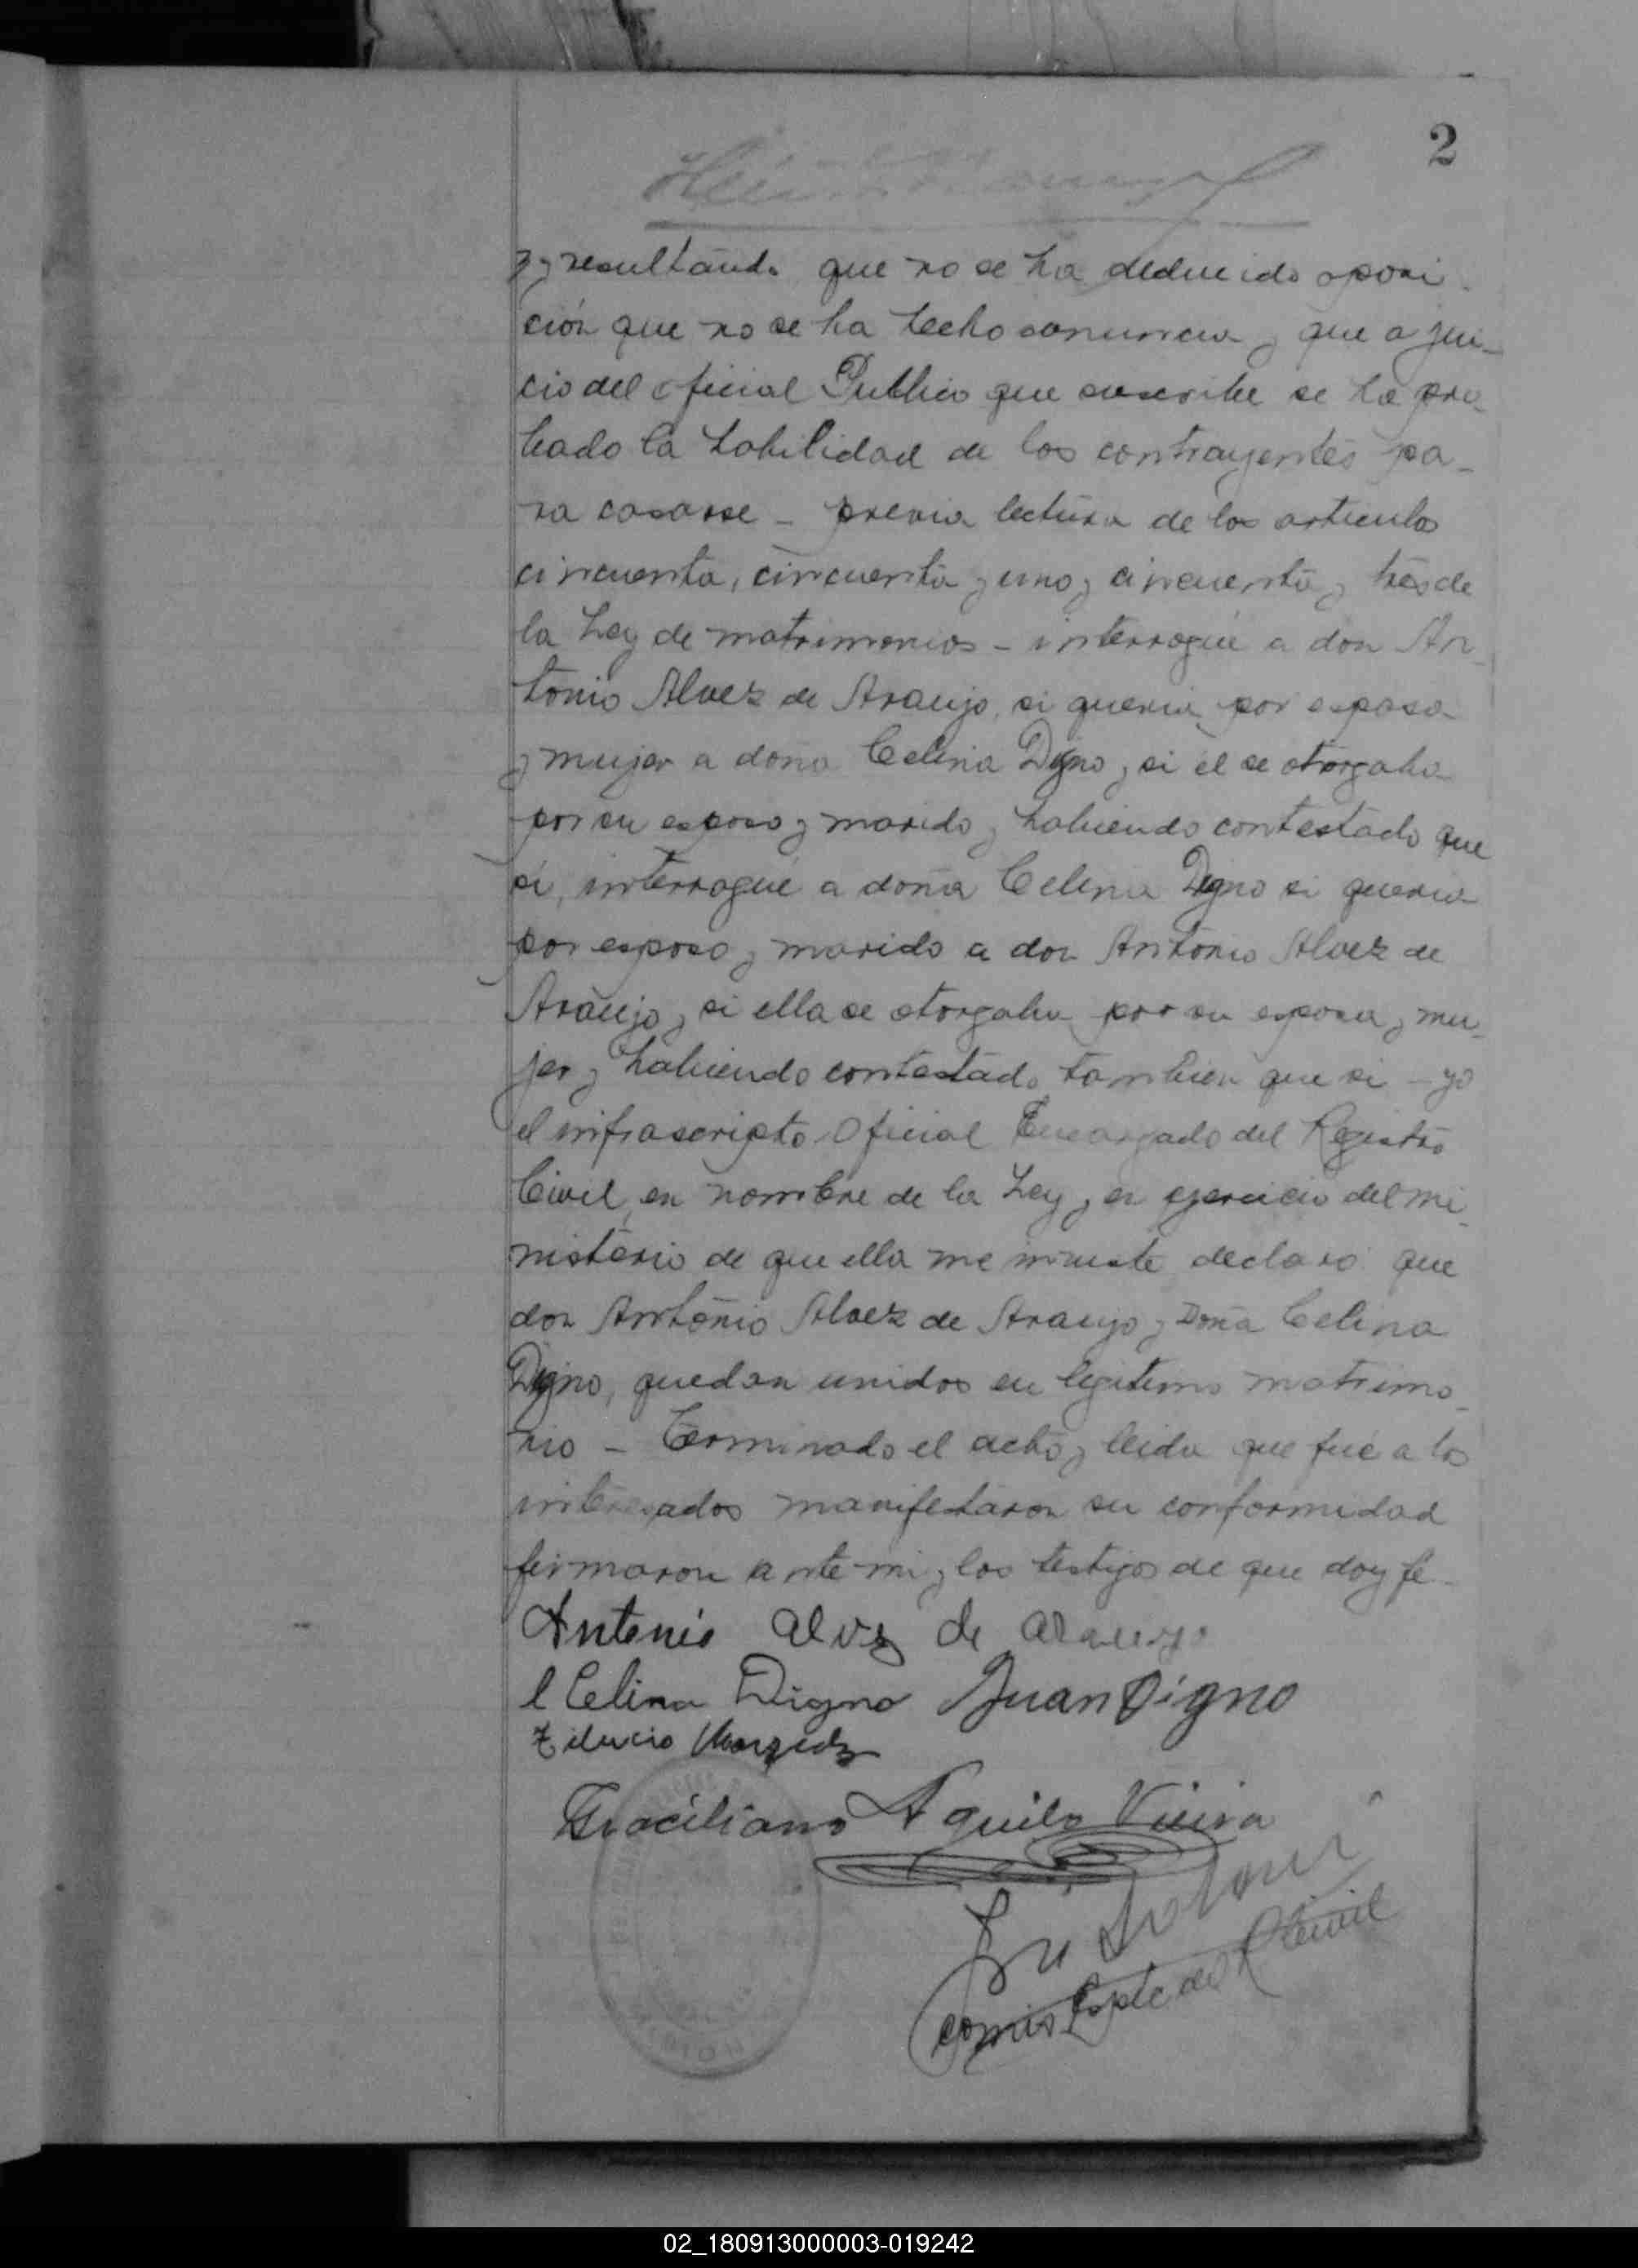 2
y resultando que no se ha deducido oposi-
ción que no se ha hecho denuncia y que a jui-
cio del oficial Publico que suscribe se ha pro-
bado la habilidad de los contrayentes pa-
ra casarse - previa lectura de los articulos
cincuenta, cincuenta y uno y cincuenta y tres de
la Ley de matrimonios - interrogué a don An-
tonio Alvez de Araujo, si queria por esposa
y mujer a doña Celina Digno y si él se otorgaba
por su esposo y marido y habiendo contestado que
si, interrogué a doña Celina Digno si queria
por esposo y marido a don Antonio Alvez de
Araujo y si ella se otorgaba por su esposa y mu-
jer y habiendo contestado tambien que si - yo
el infrascripto Oficial Encargado del Registro
Civil, en nombre de la Ley y en ejercicio del mi-
nisterio de que ella me inviste declaro que
don Antonio Alvez de Araujo y Doña Celina
Digno, quedan unidos en legitimo matrimo-
nio - Terminado el acto y leida que fué a los
interesados manifestaron su conformidad
firmaron ante mi y los testigos de que doy fé -
Antonio Alvz de Araujo
Celina Digno Juan Digno
Graciliano Aguila Vieira
Comis del R Civil
02_180913000003-019242